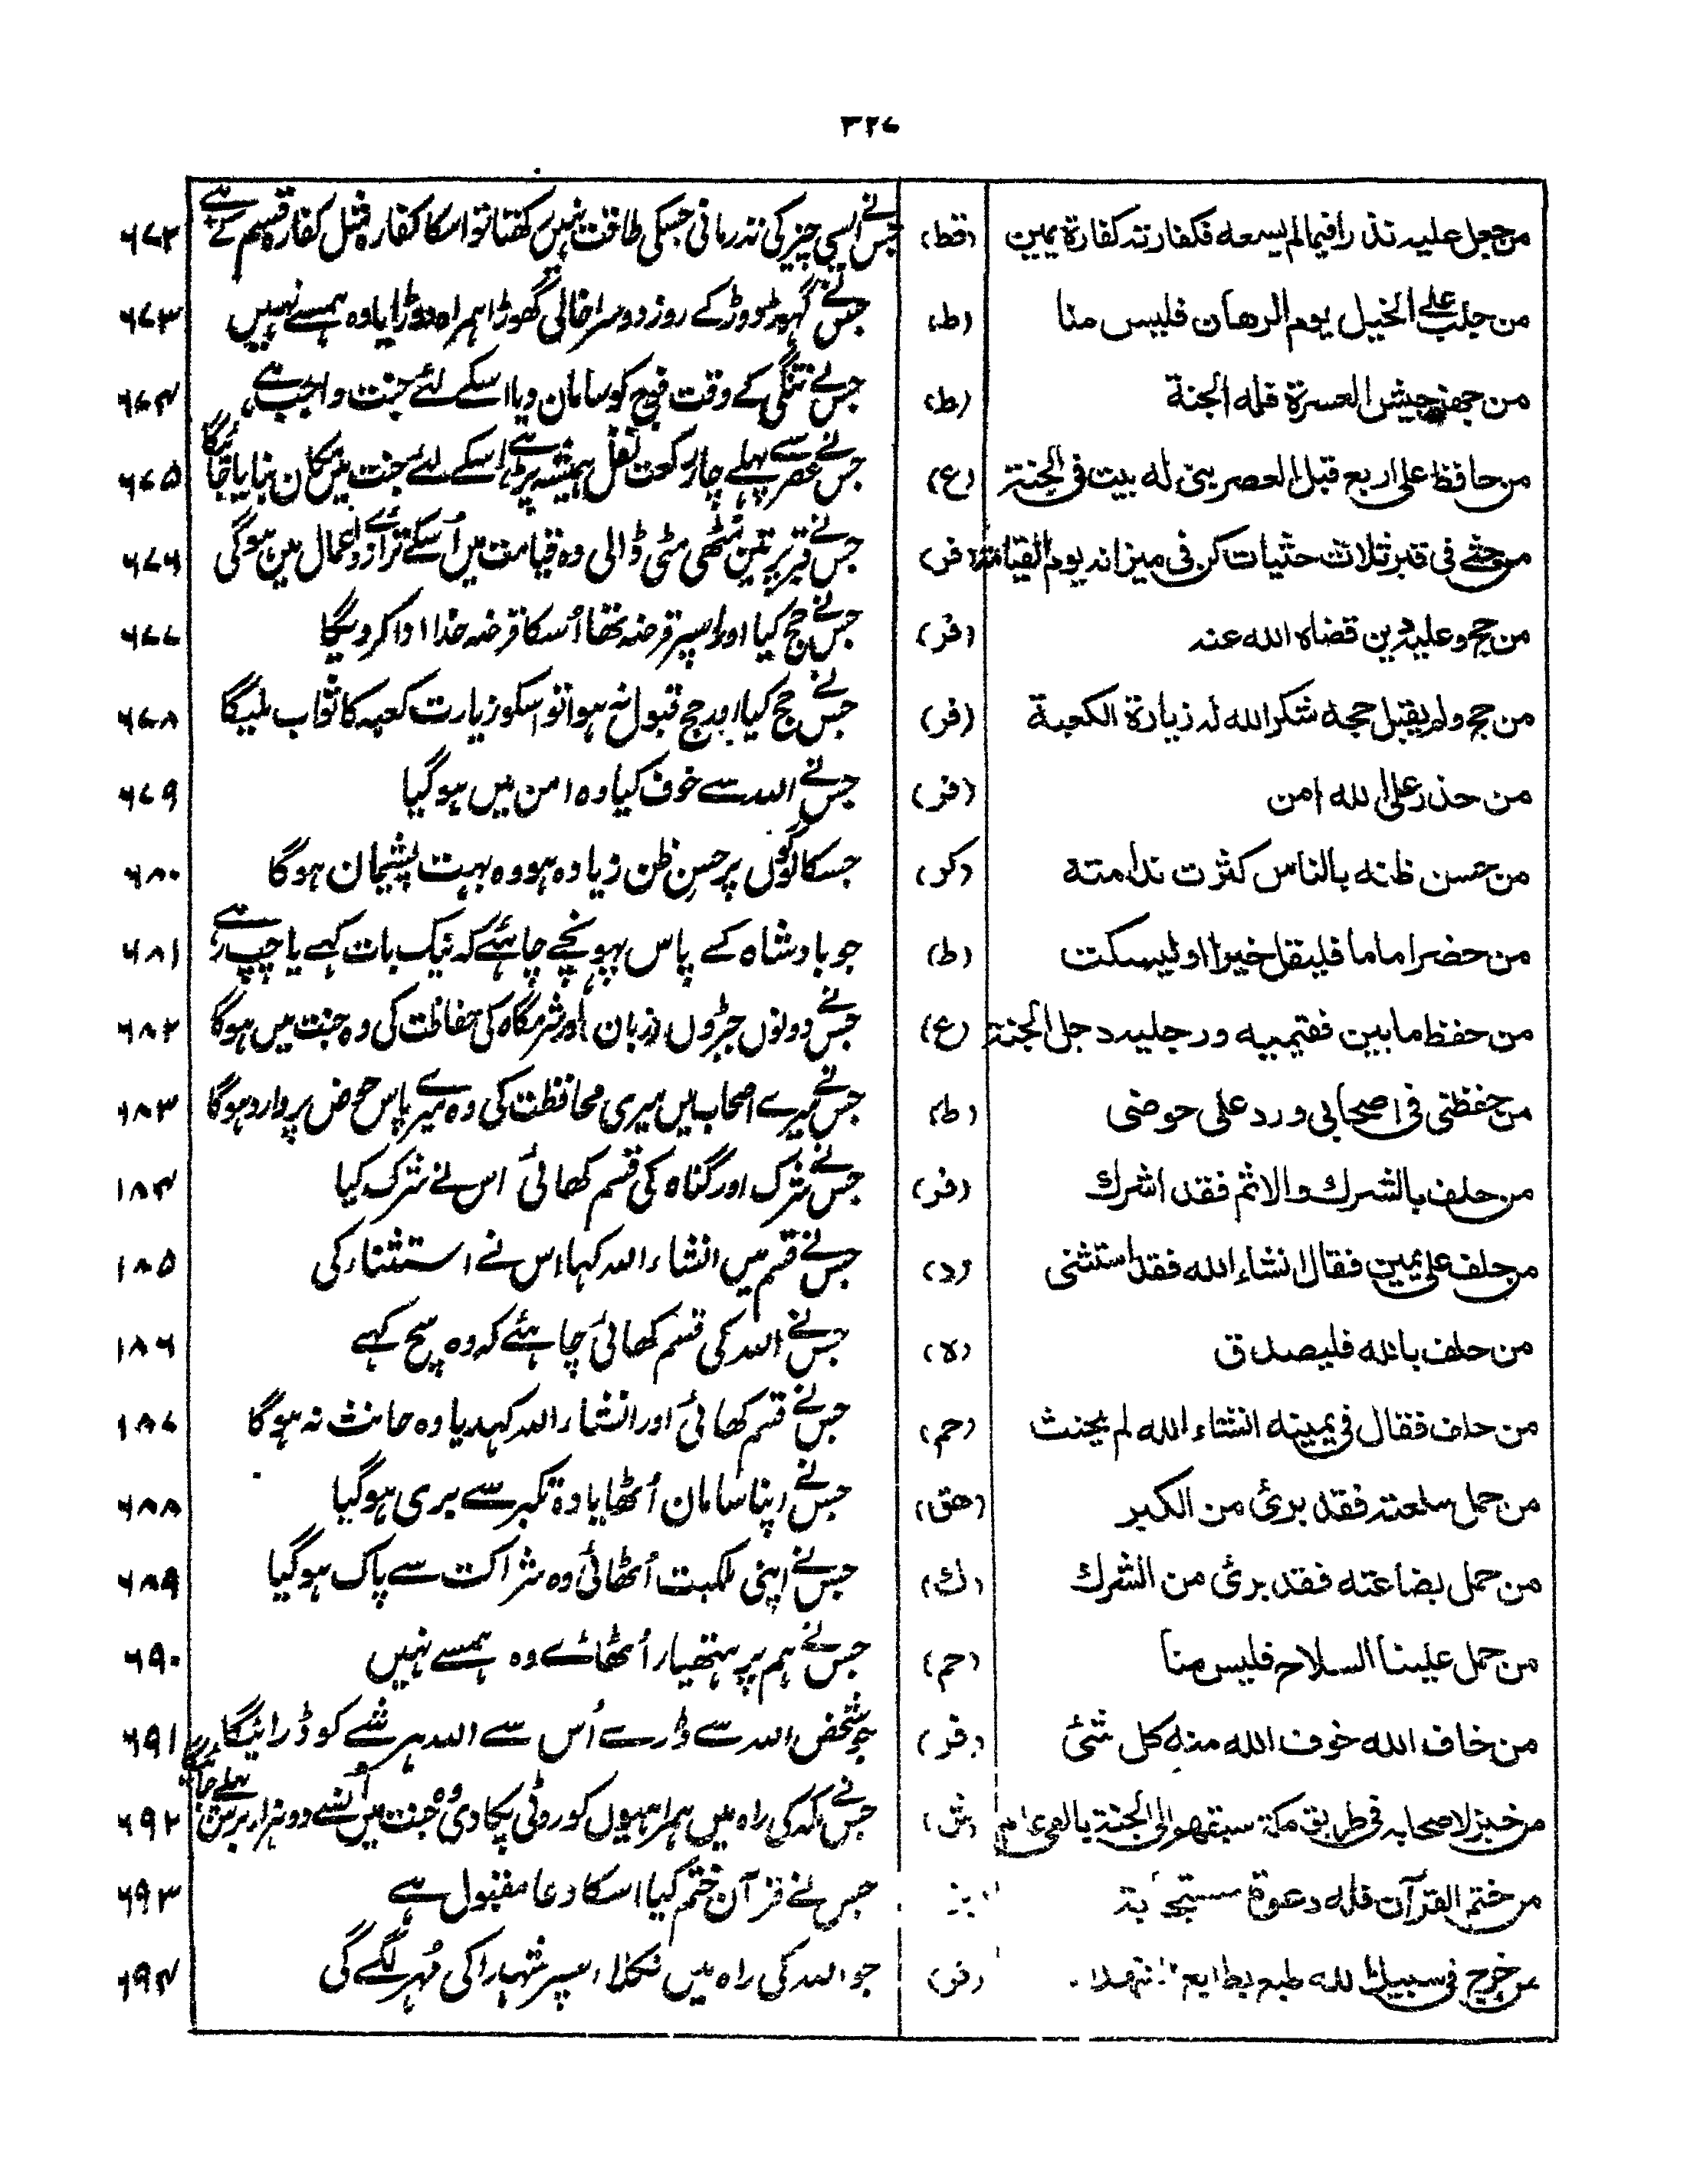 ۳۲۷
من جعل علیہ نذرا فیما لم یسعہ فکفارتہ کفارۃ یمین (قط) جس نے ایسی چیز کی نذر مانی جسکی طاقت نہیں رکھتا تو اسکا کفارہ مثل کفارہ قسم کے ہے ۶۷۲
من جلب علی الخیل یوم الرھان فلیس منا (ط) جس نے گہوڑ دوڑ کے روز دوسرا خالی گھوڑا ہمراہ دوڑایا وہ ہمسے نہیں ۶۷۳
من جھز جیش العسرۃ فلہ الجنۃ (ط) جس نے تنگی کے وقت فوج کو سامان دیا اسکے لئے جنت واجب ہے ۶۷۴
من حافظ علی اربع قبل العصر بنی لہ بیت فی الجنۃ (ع) جس نے عصر سے پہلے چار رکعت نفل ہمیشہ پڑہے اسکے لئے جنت میں مکان بنایا جائیگا ۶۷۵
من حثی فی قبر ثلاث حثیات کن فی میزانہ یوم القیامۃ (فر) جس نے قبر پر تین مٹھی مٹی ڈالی وہ قیامت میں اُسکے ترازوئے اعمال میں ہوگی ۶۷۶
من حج وعلیہ دین قضاہ اللہ عنہ (فر) جس نے حج کیا اور اسپر قرضہ تھا اُسکا قرضہ خدا ادا کر دیگا ۶۷۷
من حج ولم یقبل حجہ شکر اللہ لہ زیارۃ الکعبۃ (فر) جس نے حج کیا اور حج قبول نہ ہوا تو اسکو زیارت کعبہ کا ثواب ملیگا ۶۷۸
من حذر علی اللہ امن (فر) جس نے اللہ سے خوف کیا وہ امن میں ہوگیا ۶۷۹
من حسن ظنہ بالناس کثرت ندامتہ (کر) جسکا لوگوں پر حسن ظن زیادہ ہو وہ بہت پشیمان ہوگا ۶۸۰
من حضر اماما فلیقل خیرا او لیسکت (ط) جو بادشاہ کے پاس پہونچے چاہئے کہ نیک بات کہے یا چپ رہے ۶۸۱
من حفظ ما بین فقیمیہ ورجلیہ دخل الجنۃ (ع) جس نے دونوں جبڑوں زبان اور شرمگاہ کی حفاظت کی وہ جنت میں ہوگا ۶۸۲
من حفظنی فی اصحابی ورد علی حوضی (ط) جس نے میرے اصحاب میں میری محافظت کی وہ میرے پاس حوض پر وارد ہوگا ۶۸۳
من حلف بالشرک والاثم فقد اشرک (فر) جس نے شرک اور گناہ کی قسم کھائی اس نے شرک کیا ۶۸۴
من حلف علی یمین فقال انشاء اللہ فقد استثنی (د) جس نے قسم میں انشاء اللہ کہا اس نے استثناء کی ۶۸۵
من حلف باللہ فلیصدق (ہ) جس نے اللہ کی قسم کھائی چاہئے کہ وہ سچ کہے ۶۸۶
من حلف فقال فی یمینہ انشاء اللہ لم یحنث (حم) جس نے قسم کھائی اور انشاء اللہ کہدیا وہ حانث نہ ہوگا ۶۸۷
من حمل سلعتہ فقد برئ من الکبر (ھق) جس نے اپنا سامان اُٹھایا وہ تکبر سے بری ہوگیا ۶۸۸
من حمل بضاعتہ فقد برئ من الشرک (ک) جس نے اپنی ملکیت اُٹھائی وہ شراکت سے پاک ہوگیا ۶۸۹
من حمل علینا السلاح فلیس منا (حم) جس نے ہم پر ہتھیار اُٹھائے وہ ہمسے نہیں ۶۹۰
من خاف اللہ خوف اللہ منہ کل شئ (فر) جو شخص اللہ سے ڈرے اُس سے اللہ ہر شے کو ڈرائیگا ۶۹۱
من خبز لاصحابہ فی طریق مکۃ سبقھم الی الجنۃ بالفی عام (ش) جس نے مکہ کی راہ میں ہمراہیوں کو روٹی پکا دی وہ جنت میں اُنسے دو ہزار برس پہلے جائیگا ۶۹۲
من ختم القرآن فلہ دعوۃ جس نے قرآن ختم کیا اسکا دعا مقبول ہے ۶۹۳
من خرج فی سبیل اللہ طبع بطابع (فر) جو اللہ کی راہ میں نکلا اسپر شہدا کی مُہر لگے گی ۶۹۴